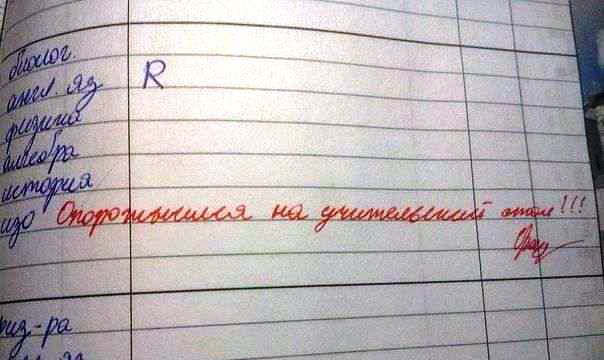 биолог.
англ. яз R
физика
алгебра
история
изо Опорожнился на учительский стол!!!
физ-ра